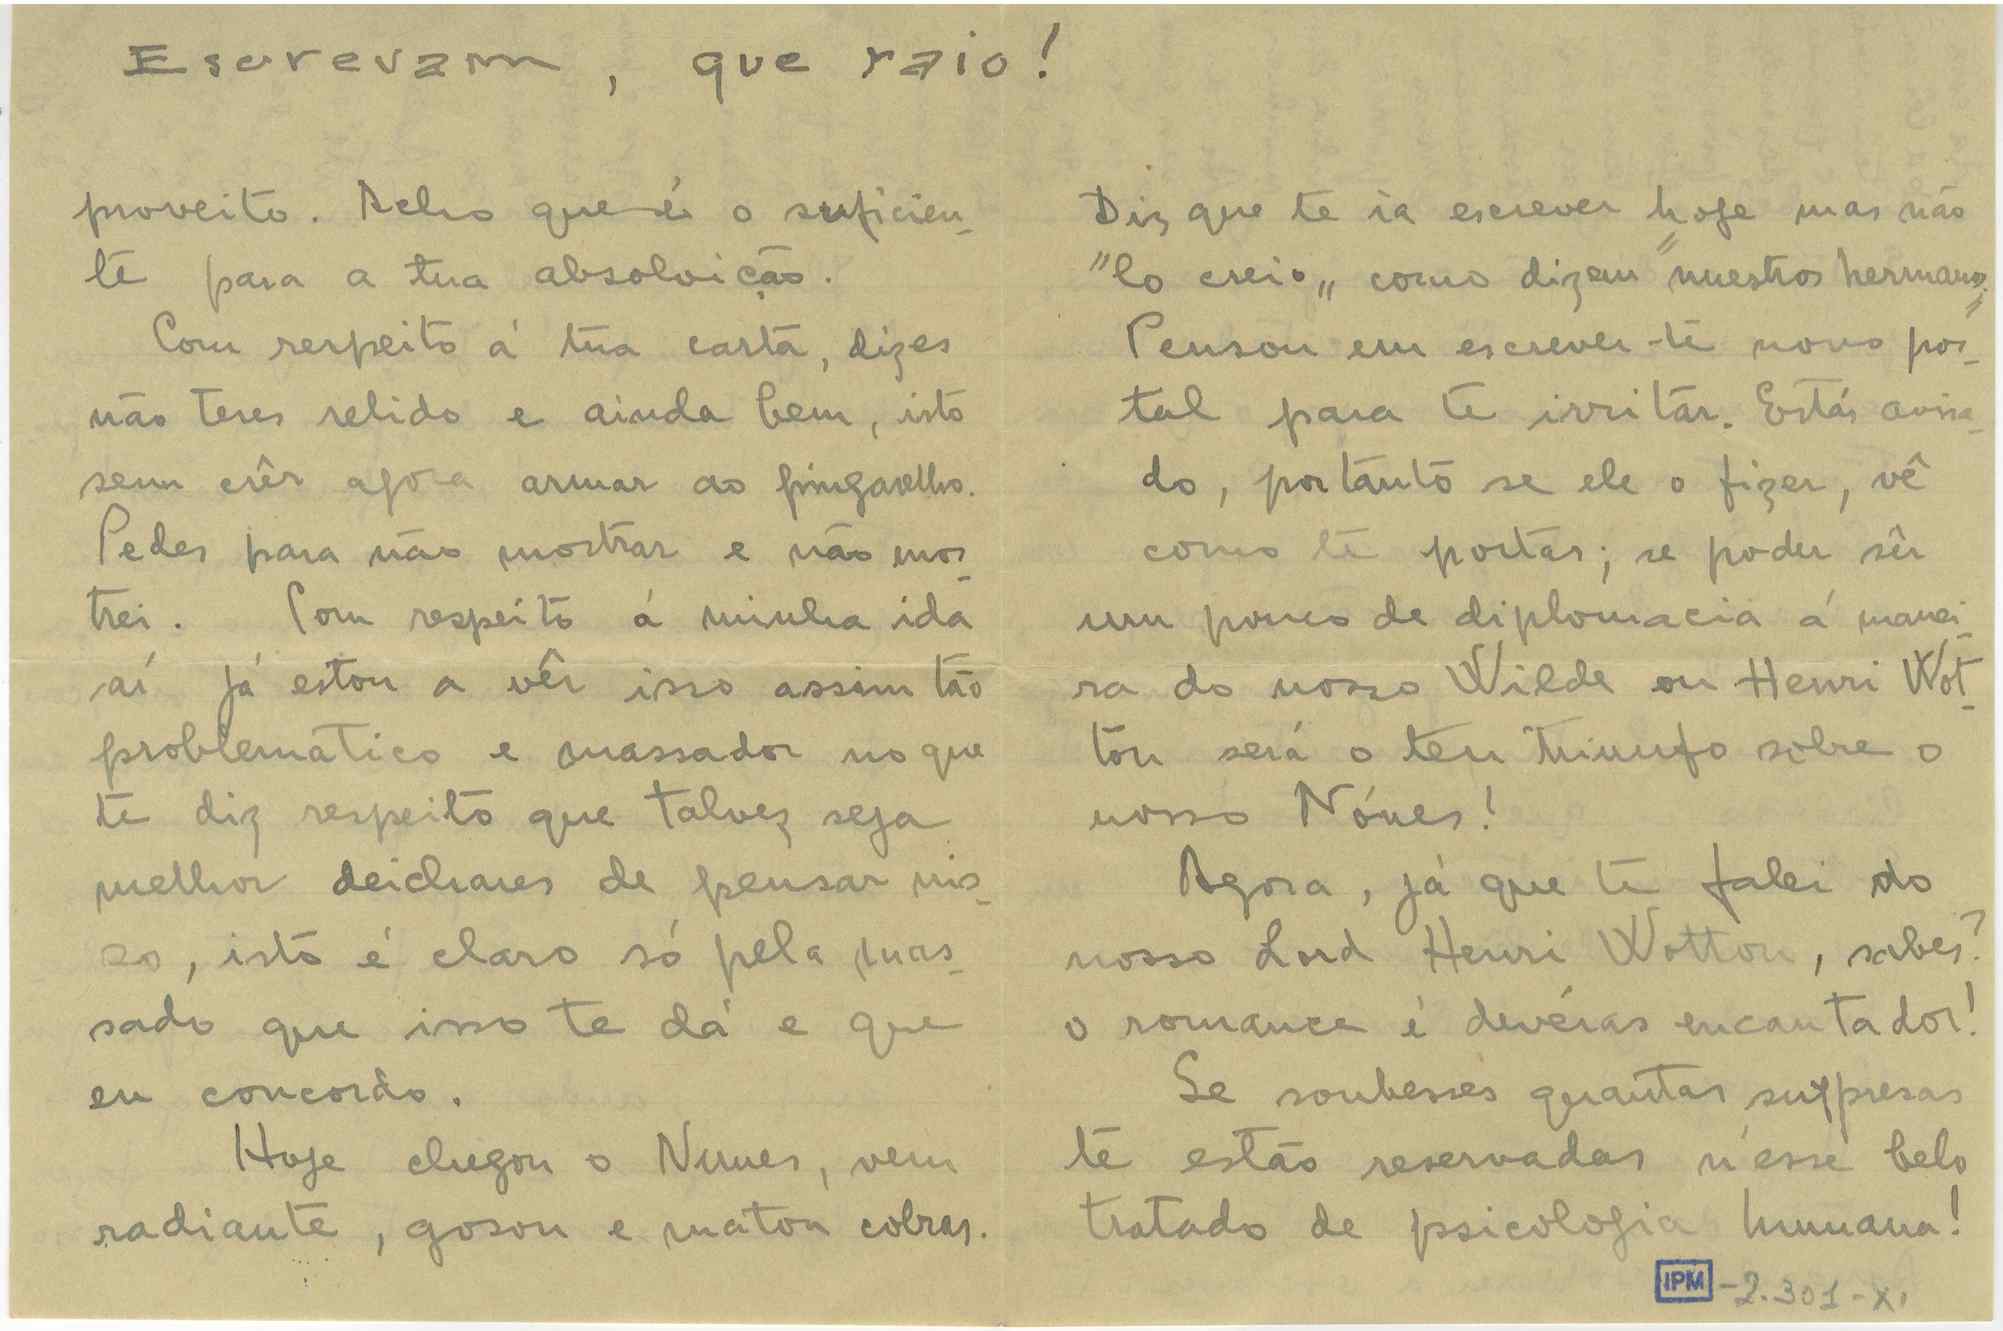 Escrevam, que raio!
proveito. Acho que é o suficien-
te para a tua absolvição.
Com respeito á tua carta, dizes
não teres relido e ainda bem, isto
sem crêr agora armar ao pingarelho.
Pedes para não mostrar e não mos-
trei. Com respeito á minha ida
aí já estou a vêr isso assim tão
problematico e massador no que
te diz respeito que talvez seja
melhor deichares de pensar nis-
so, isto é claro só pela mas-
sada que isso te dá e que
eu concordo.
Hoje chegou o Nunes, vem
radiante, gosou e matou cobras.
Diz que te ia escrever hoje mas não
"lo creio„ como dizem "nuestros hermanos„
Pensou em escrever-te novo pos-
tal para te irritar. Estás avisa-
do, portanto se ele o fizer, vê
como te portas; se poder sêr
um pouco de diplomacia á manei-
ra do nosso Wilde ou Henri Wot-
ton será o teu triunfo sobre o
nosso Nónes!
Agora, já que te falei do
nosso Lord Henri Wotton, sabes?
o romance é devéras encantador!
Se soubesses quantas surpresas
te estão reservadas n'esse belo
tratado de psicologia humana!
IPM -2.301-XI